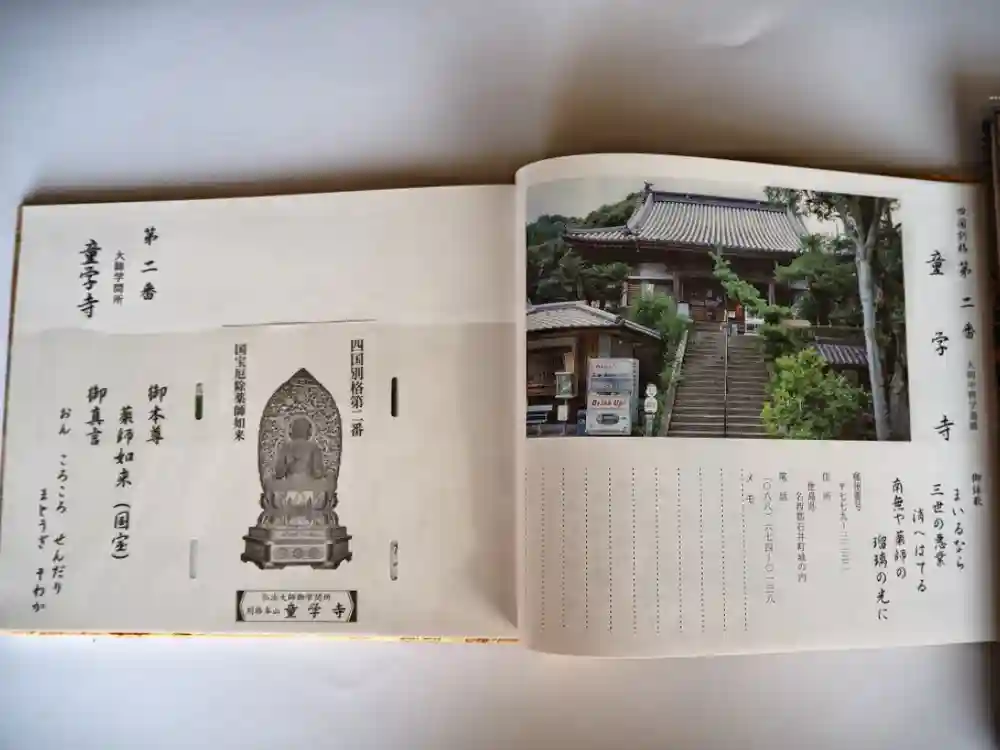 四国別格 第二番 大師御学問所
童学寺
御詠歌
まいるなら
三世の悪業
消へはてる
南無や薬師の
瑠璃の光に
郵便番号
〒七七九ー三二三二
住所
徳島県
名西郡石井町城の内
電話
(〇八八)六七四ー〇一三八
メモ
Drink Up!
第二番
大師学問所
童学寺
四国別格第二番
国宝厄除薬師如来
弘法大師御学問所
別格本山 童学寺
御本尊
薬師如来(国宝)
御真言
おん ころころ せんだり
まとうぎ そわか